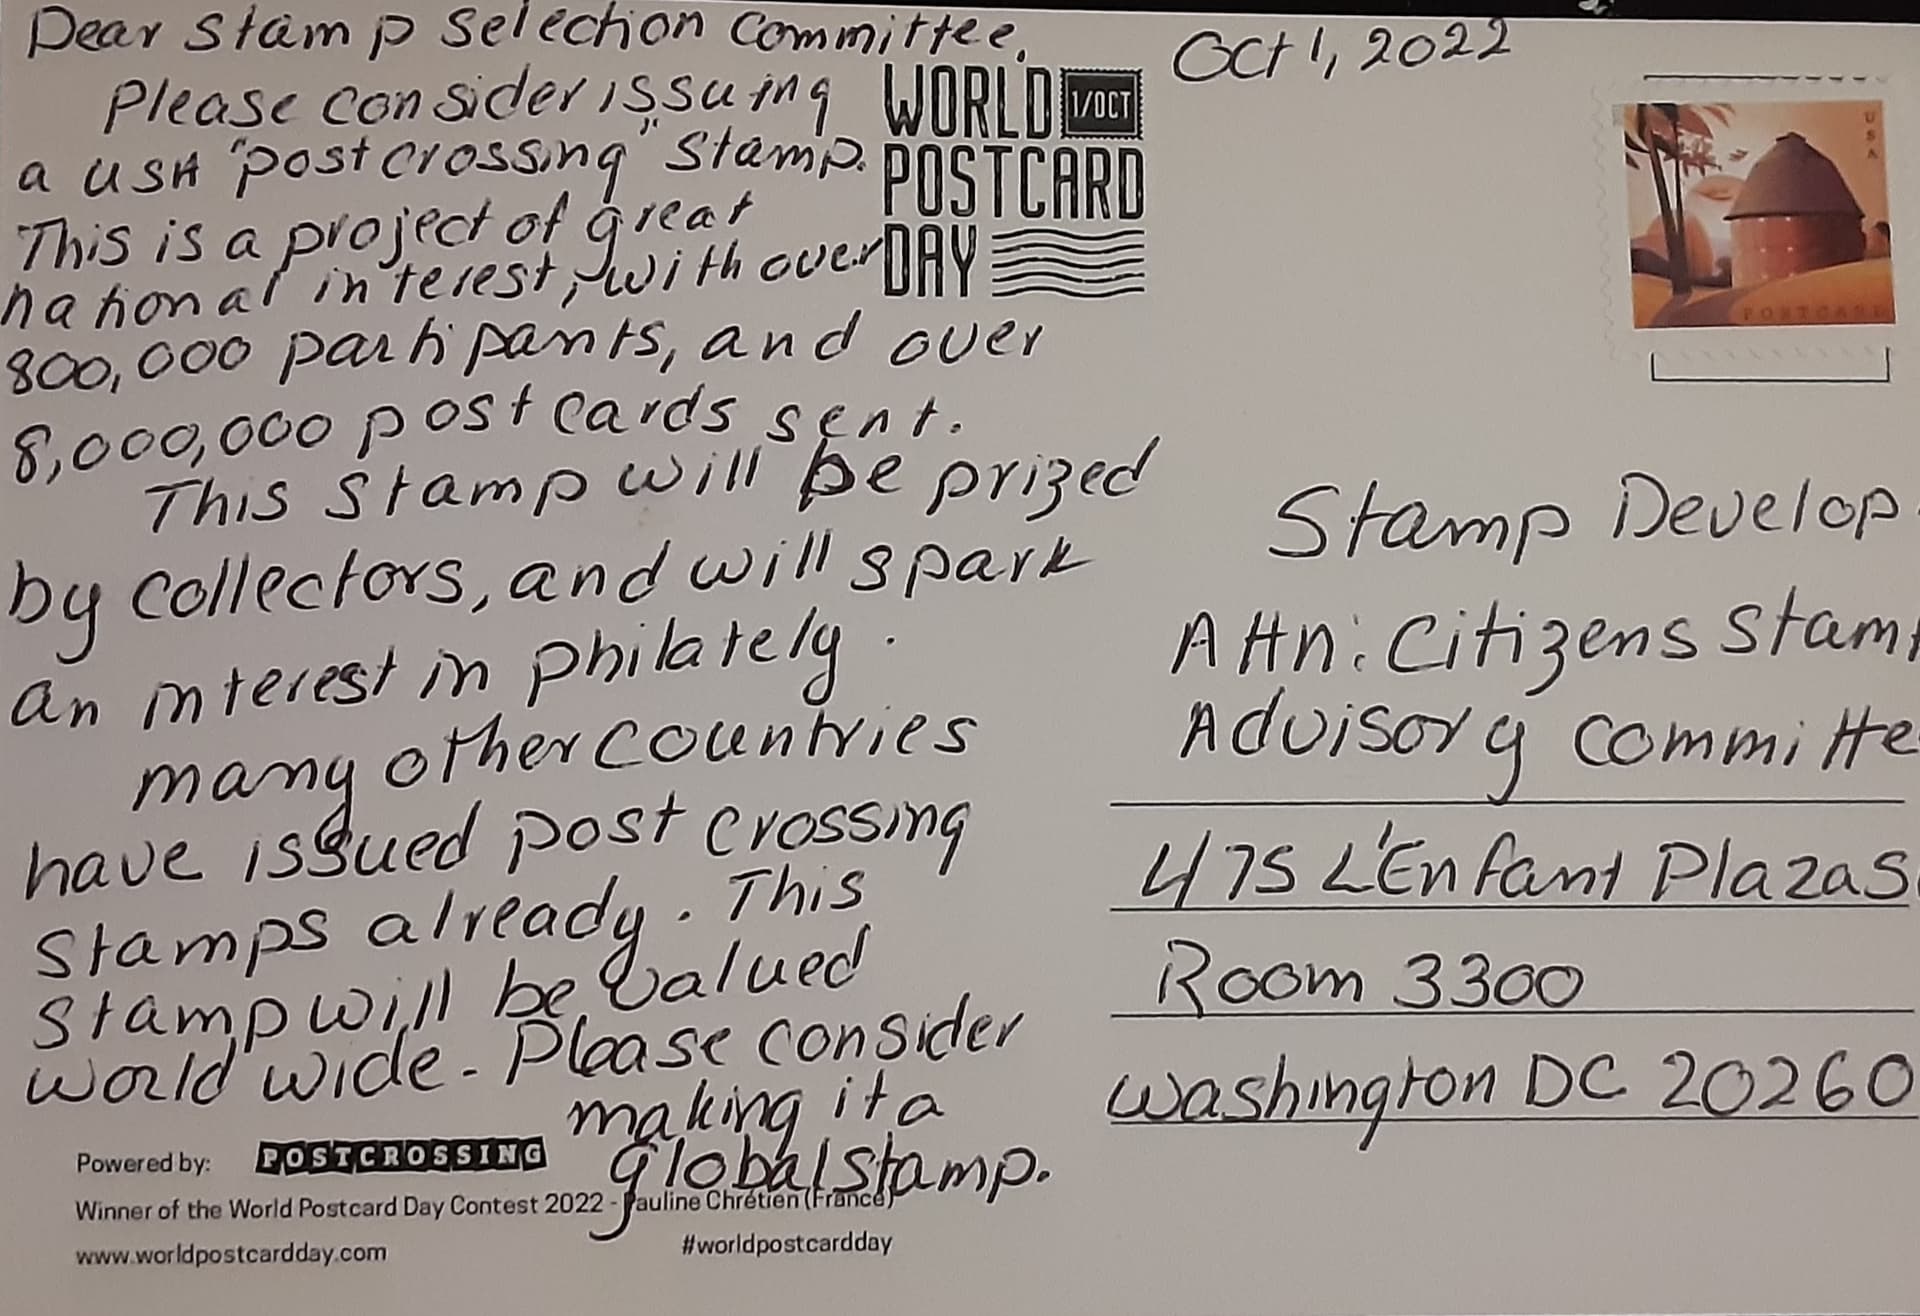 Dear Stamp Selection Committee,
Please consider issuing
a USA "postcrossing" stamp.
This is a project of great
national interest, with over
800,000 partipants, and over
8,000,000 postcards sent.
This stamp will be prized
by collectors, and will spark
an interest in philately.
many other countries
have issued postcrossing
stamps already. This
stamp will be valued
world wide. Please consider
making it a
global stamp.
WORLD 1/OCT
POSTCARD
DAY
Powered by: POSTCROSSING
Winner of the World Postcard Day Contest 2022 - Pauline Chrétien (France)
www.worldpostcardday.com #worldpostcardday
Oct 1, 2022
USA
POSTCARD
Stamp Develop
Attn: Citizens Stam
Advisory Committe
475 L'Enfant Plaza S
Room 3300
Washington DC 20260